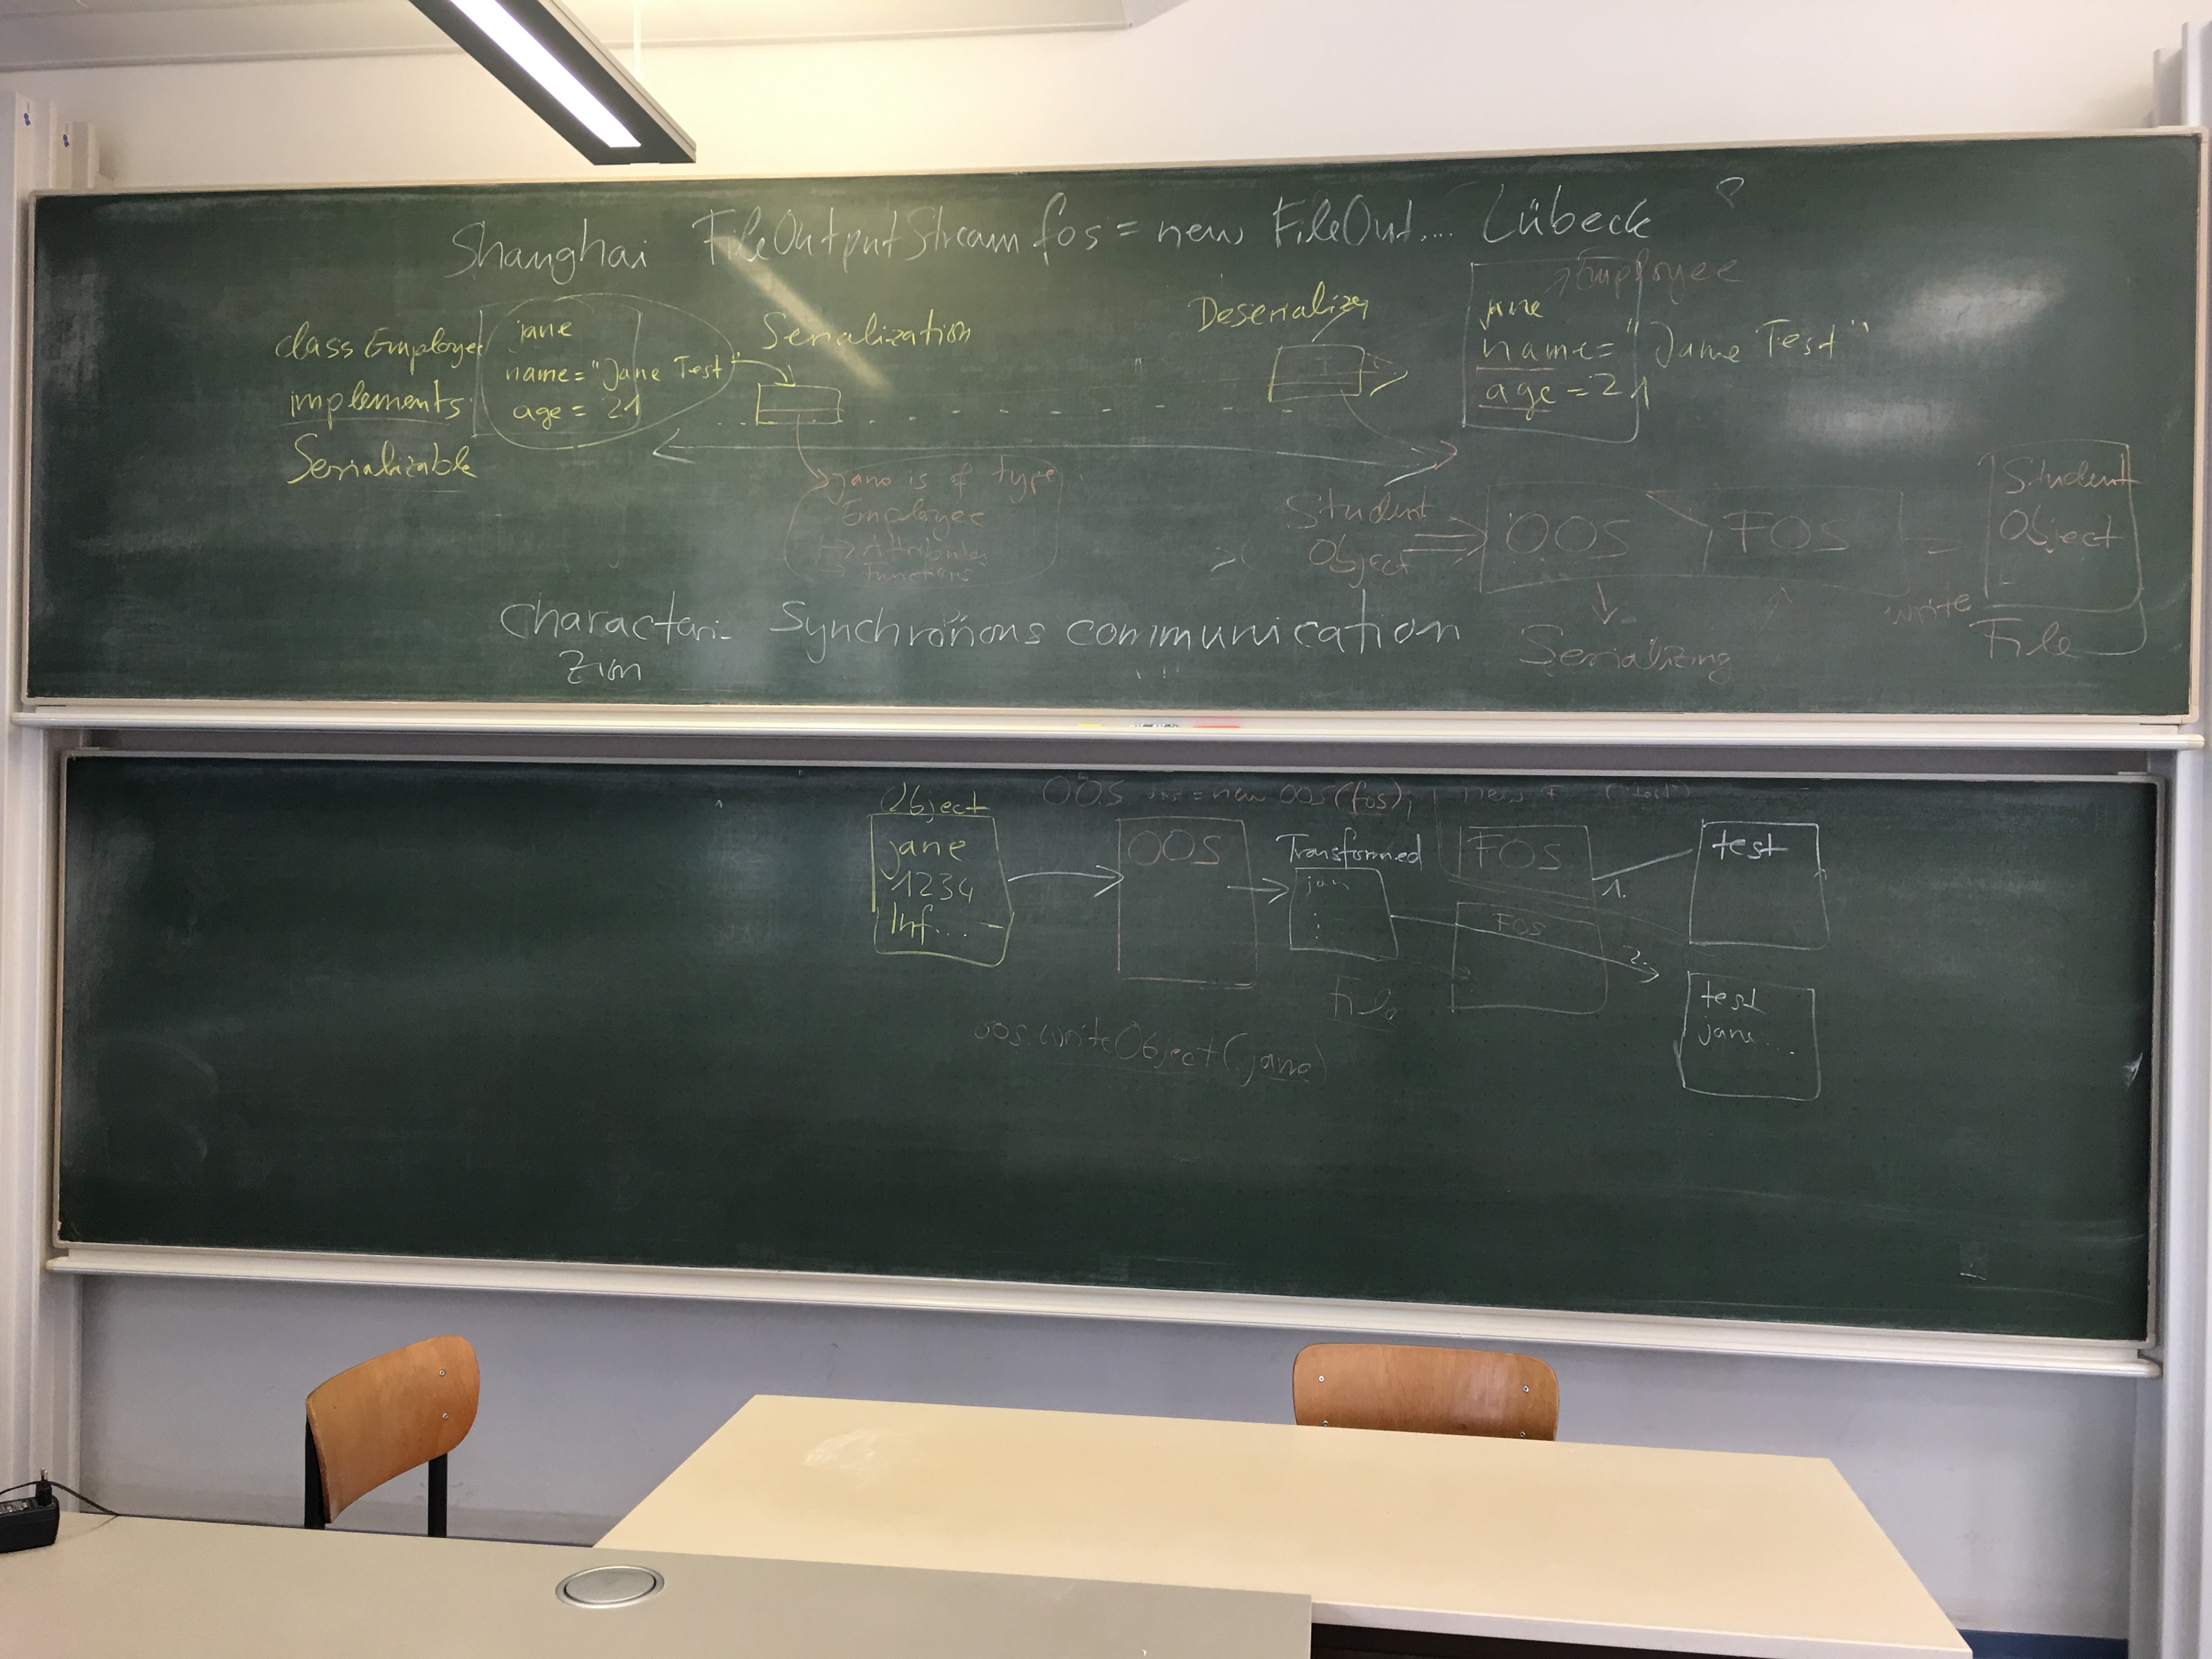 Shanghai FileOutputStream fos = new FileOut.... Lübeck ?
class Employee
implements
Serializable
jane
name = "Jane Test"
age = 21
Serialization
Deserialize
Employee
jane
name = "Jane Test"
age = 21
jane is of type
Employee
→ Attributes
→ Functions
Student
Object
OOS
FOS
write
Serializing
Student
Object
File
Charactari-
zion
Synchronous communication
Object
jane
1234
Inf...
OOS = new OOS(fos);
new F ("test")
OOS
Transformed
jan
:
FOS
1.
test
FOS
2.
test
jane....
File
oos.writeObject(jane)